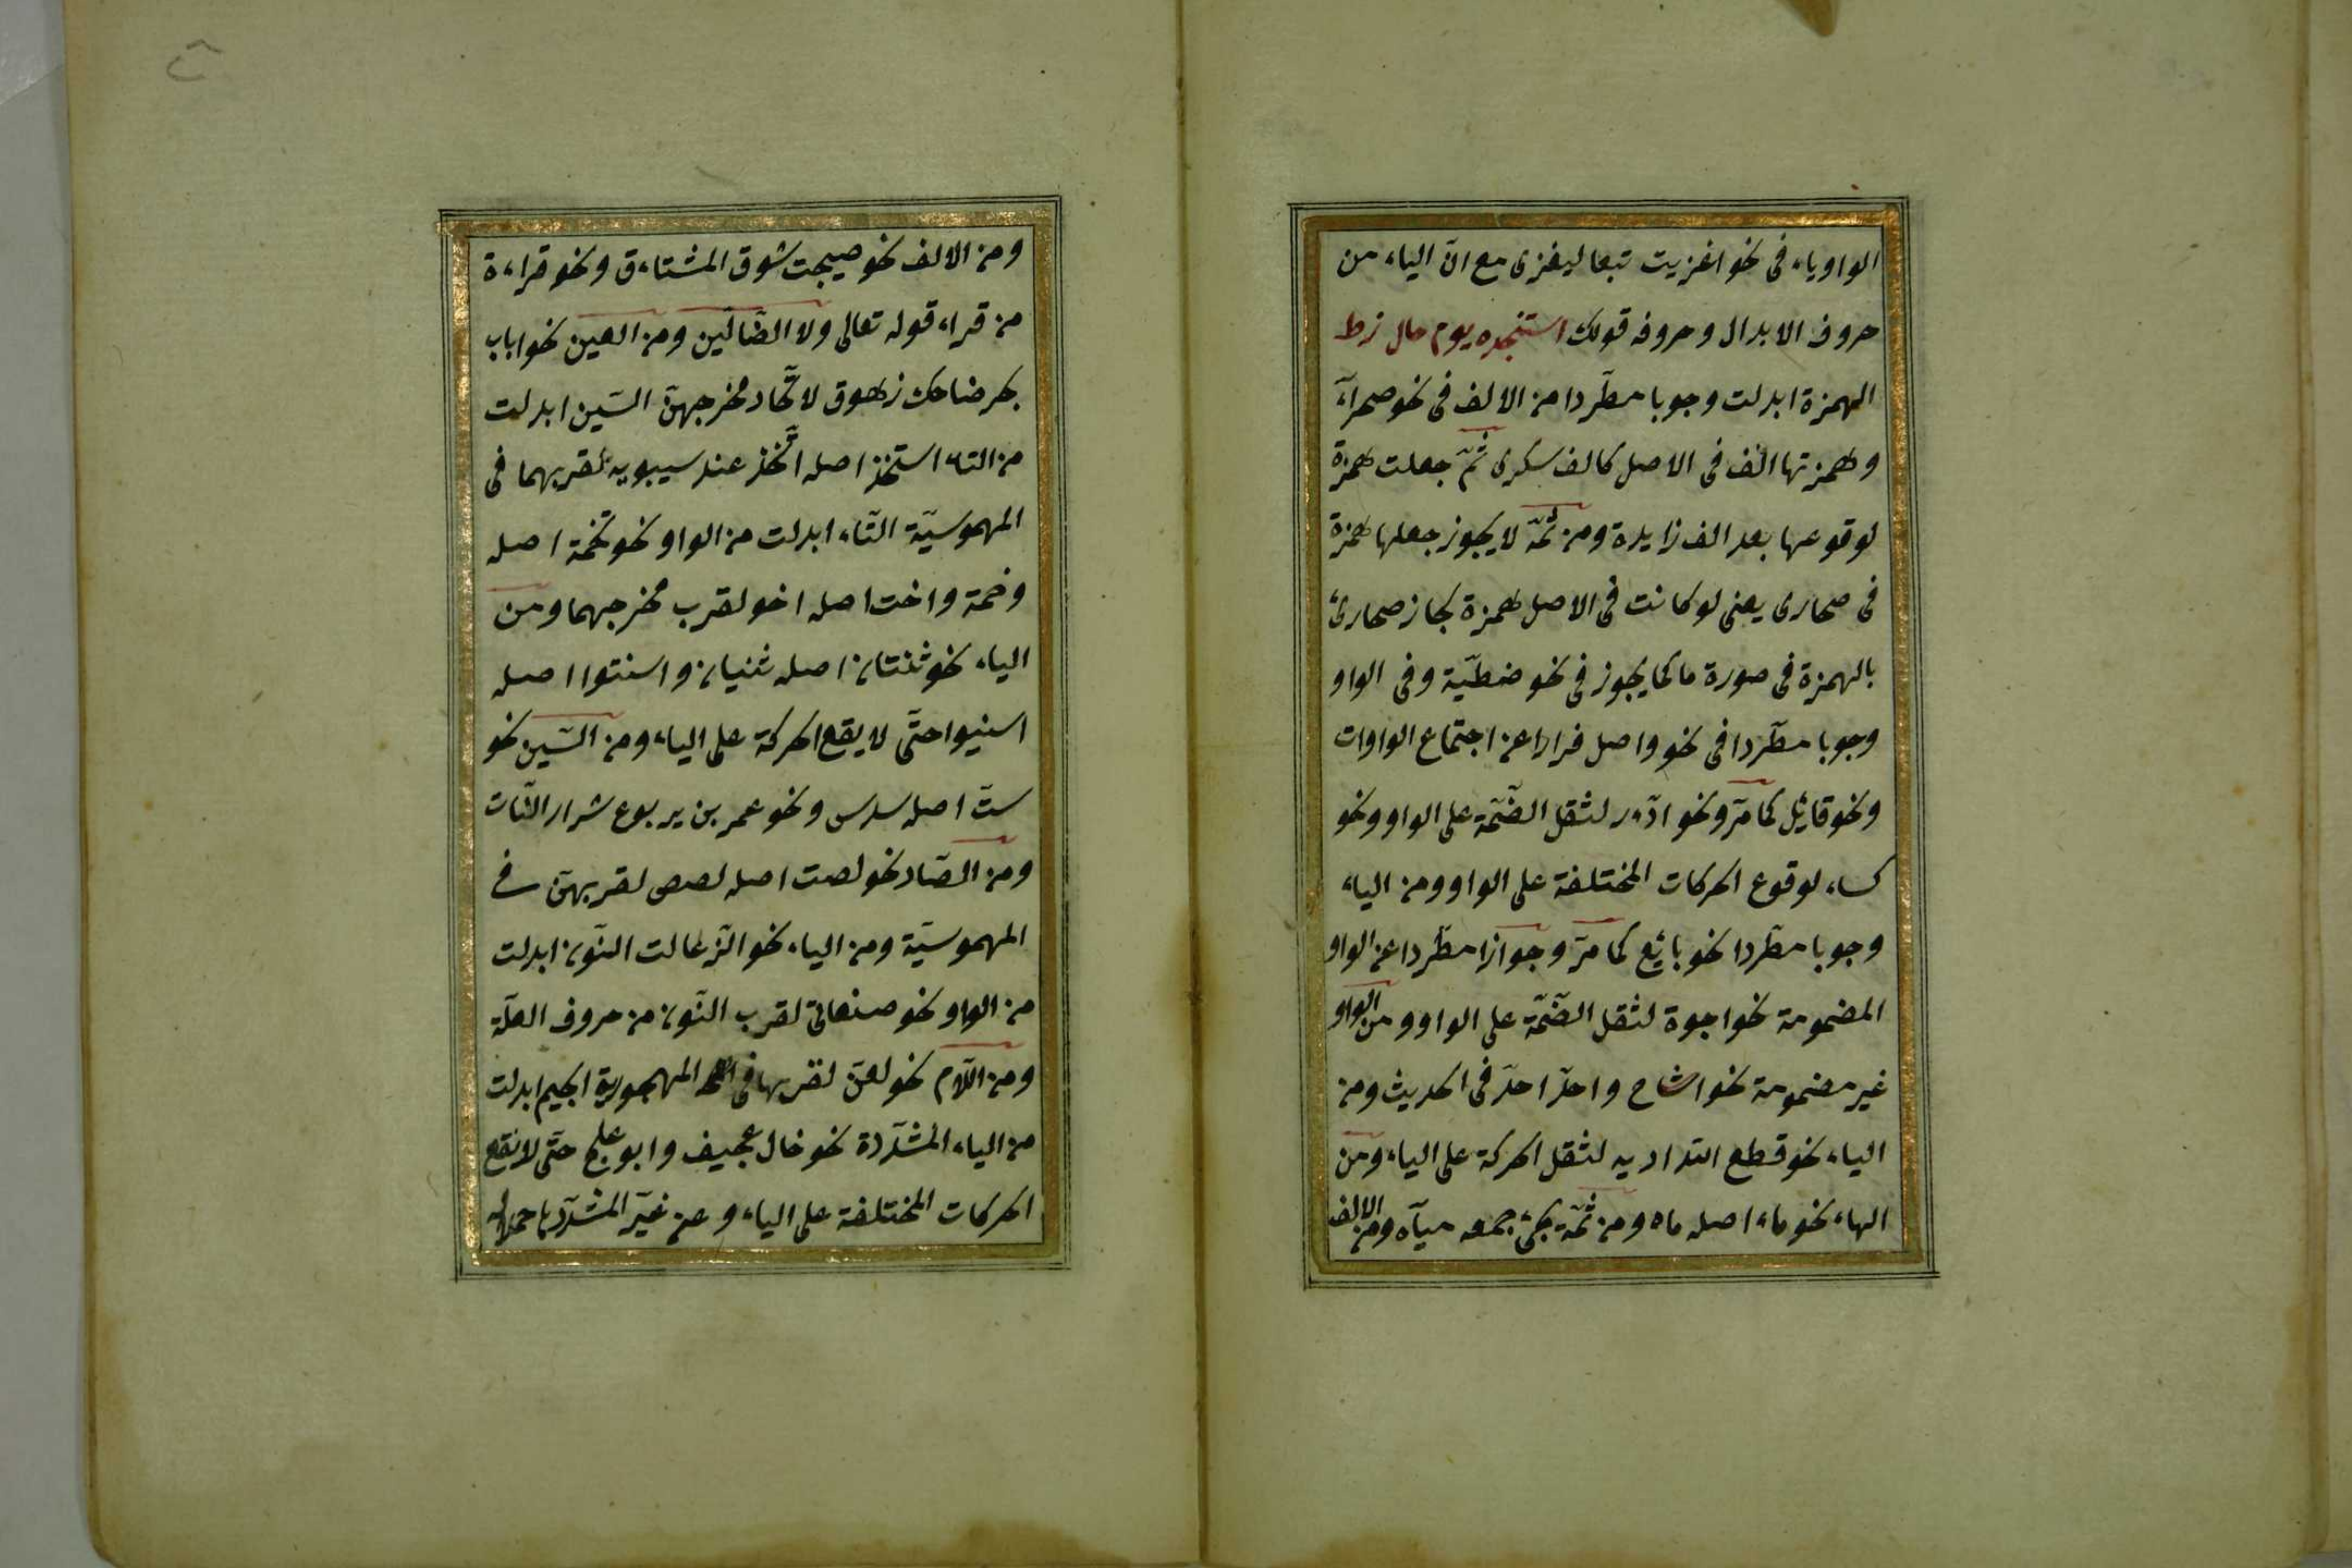 الواو ياء فى نحو اغزيت تبعا ليغزى مع انّ الياء من
حروف الابدال وحروفه قولك استنجده يوم صال زط
الهمزة ابدلت وجوبا مطّردا من الالف فى نحو صحرآء
وهمزتها الف فى الاصل كالف سكرى ثمّ جعلت همزة
لوقوعها بعد الف زايدة ومن ثمّة لا يجوز جعلها همزة
فى صحارى يعنى لو كانت فى الاصل همزة لجاز صحارئ
بالهمزة فى صورة ما كما يجوز فى نحو خطيّة وفى الواو
وجوبا مطّردا فى نحو واصل فرارا عن اجتماع الواوات
ونحو قائل كما مرّ ونحو ادءر لثقل الضّمّة على الواو ونحو
كساء لوقوع الحركات المختلفة على الواو ومن الياء
وجوبا مطّردا نحو بائع كما مرّ وجوازا مطّردا عن الواو
المضمومة نحو اجوة لثقل الضّمّة على الواو ومن الواو
غير مضمومة نحو اشاح واحدّ احدّ فى الحديث ومن
الياء نحو قطع الله اديه لثقل الحركة على الياء ومن
الهاء نحو ماء اصله ماه ومن ثمّة يجئ جمعه مياه ومن الالف
ومن الالف نحو هيجت شوق المشتاءق ونحو قراءة
من قراء قوله تعالى ولا الضّالّين ومن العين نحو اباب
بحر ضاحك زهوق لاتّحاد مخرجهنّ السّين ابدلت
من التاء استخذ اصله اتّخذ عند سيبويه لقربهما فى
المهموسيّة التّاء ابدلت من الواو نحو تخمة اصله
وخمة واخت اصله اخو لقرب مخرجهما ومن
الياء نحو ثنتان اصله ثنيان واسنتوا اصله
اسنيوا حتّى لا يقع الحركة على الياء ومن السّين نحو
ستّ اصله سدس ونحو عمر بن يربوع شرار النّات
ومن الصّاد نحو لصت اصله لصص لقربهنّ فى
المهموسيّة ومن الياء نحو الذّعالت النّون ابدلت
من الواو نحو صنعانى لقرب النّون من حروف العلّة
ومن اللّام نحو لعنّ لقربها فى المهجورية الجيم ابدلت
من الياء المشدّدة نحو خال عجيف وابو علج حتّى لا تقع
الحركات المختلفة على الياء وعن غير المشدّد